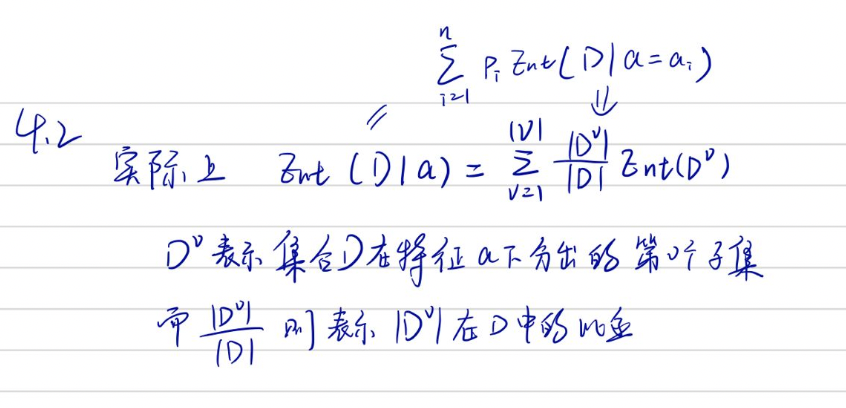 ∑_{i=1}^{n} P_i Ent(D|a=a_i)
⇓
4.2
实际上 Ent(D|a) = ∑_{v=1}^{|V|} |D^v|/|D| Ent(D^v)
D^v 表示集合D在特征a下分出的第v个子集
而 |D^v|/|D| 则表示 |D^v| 在D中的比重